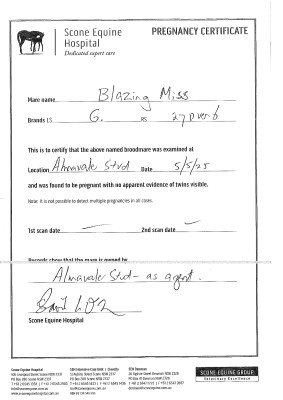 Scone Equine
Hospital
Dedicated expert care
PREGNANCY CERTIFICATE
Mare name Blazing Miss
Brands LS G. RS 27 over 6
This is to certify that the above named broodmare was examined at
Location Almavale Stud Date 5/5/25
and was found to be pregnant with no apparent evidence of twins visible.
Note: it is not possible to detect multiple pregnancies in all cases.
1st scan date 2nd scan date
Records show that the mare is owned by
Almavale Stud - as agent.
Scone Equine Hospital
SCONE EQUINE GROUP
Veterinary Excellence